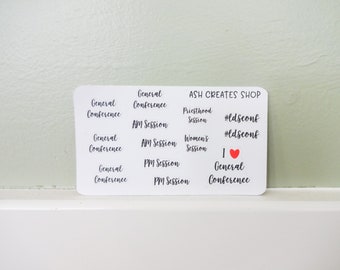 ASH CREATES SHOP
General
Conference
General
Conference
Priesthood
Session
#ldsconf
AM Session
#ldsconf
General
Conference
AM Session
Women's
Session
I ❤
General
Conference
PM Session
General
Conference
PM Session